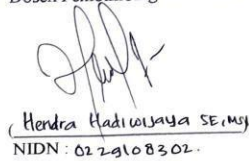 Dosen Pembimbing
( Hendra Hadiwijaya SE, MSi
NIDN : 0229108302.